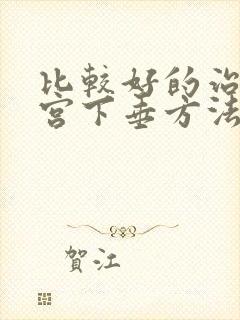 比較好的治
宮下垂方法
賀江